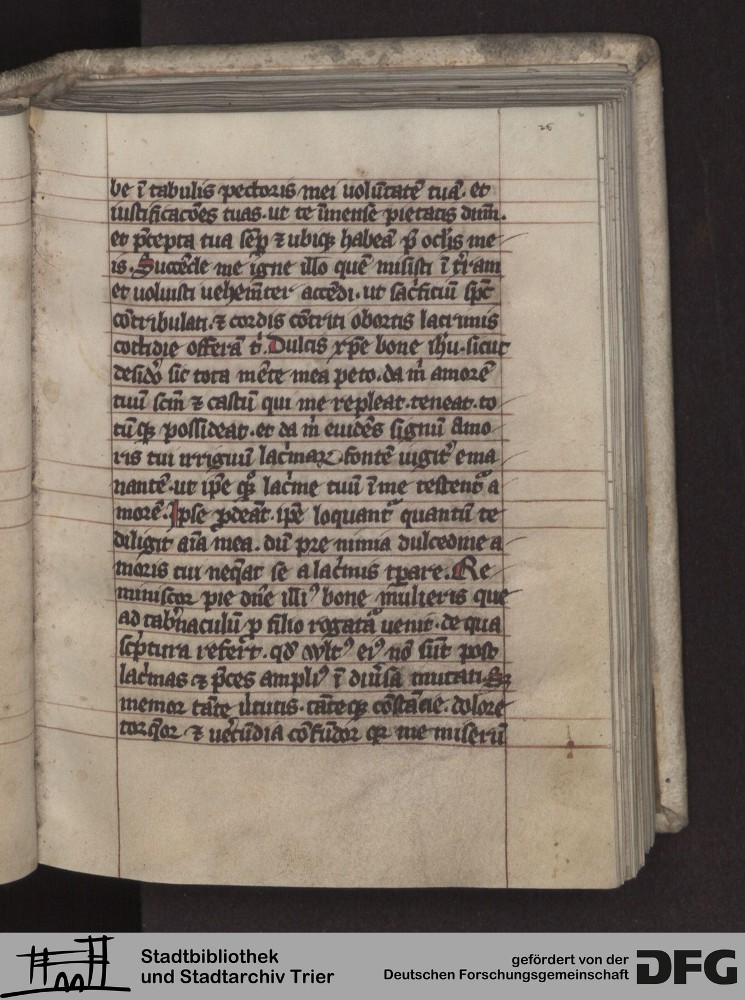 26
be ī tabulis pectoris mei uolūtatē tuā. et
iustificacōes tuas. ut te īmense pietatis dn̄m.
et p̄cepta tua sēp ⁊ ubiqꝫ habeā p̄ oclīs me
is. Succēde me igne illo quē misisti ī t̄ram
et uoluisti uehemn̄ter accēdi. ut sac̄ficiū sp̄c
cōtribulati. ⁊ cordis cōtriti obortis lacrimis
cottidie offerā t̄. Dulcis xp̄e bone ih̄u. sicut
desid̓o sic tota mēte mea peto. da m̄ amorē
tuū scm̄ ⁊ castū qui me repleat. teneat. to
tūqꝫ possideat. et da m̄ euidēs signū amo
ris tui irriguū lac̄maꝝ fontē iugit᷑ ema
nantē. ut ip̄e qꝫ lac̄me tuū ī me testent᷑ a
morē. Ip̄se ꝓdeāt. ip̄e loquant᷑ quantū te
diligit aīa mea. dū pre nimia dulcedine a
moris tui neq̄at se a lac̄mis tꝑare. Re
miniscor pie dn̄e illiꝰ bone mulieris que
ad tab̄naculū ꝑ filio rogatā uenit. de qua
sc̄ptura refert. qd̓ uultꝰ eiꝰ nō sūt post
lac̄mas ⁊ p̄ces ampliꝰ ī diūsa mutati. Sꝫ
memor tāte ūtutis. tāteqꝫ cōstācie. dolore
torq̄or ⁊ uēcūdia cōfūdor qꝛ me miserū
Stadtbibliothek
und Stadtarchiv Trier
gefördert von der
Deutschen Forschungsgemeinschaft
DFG